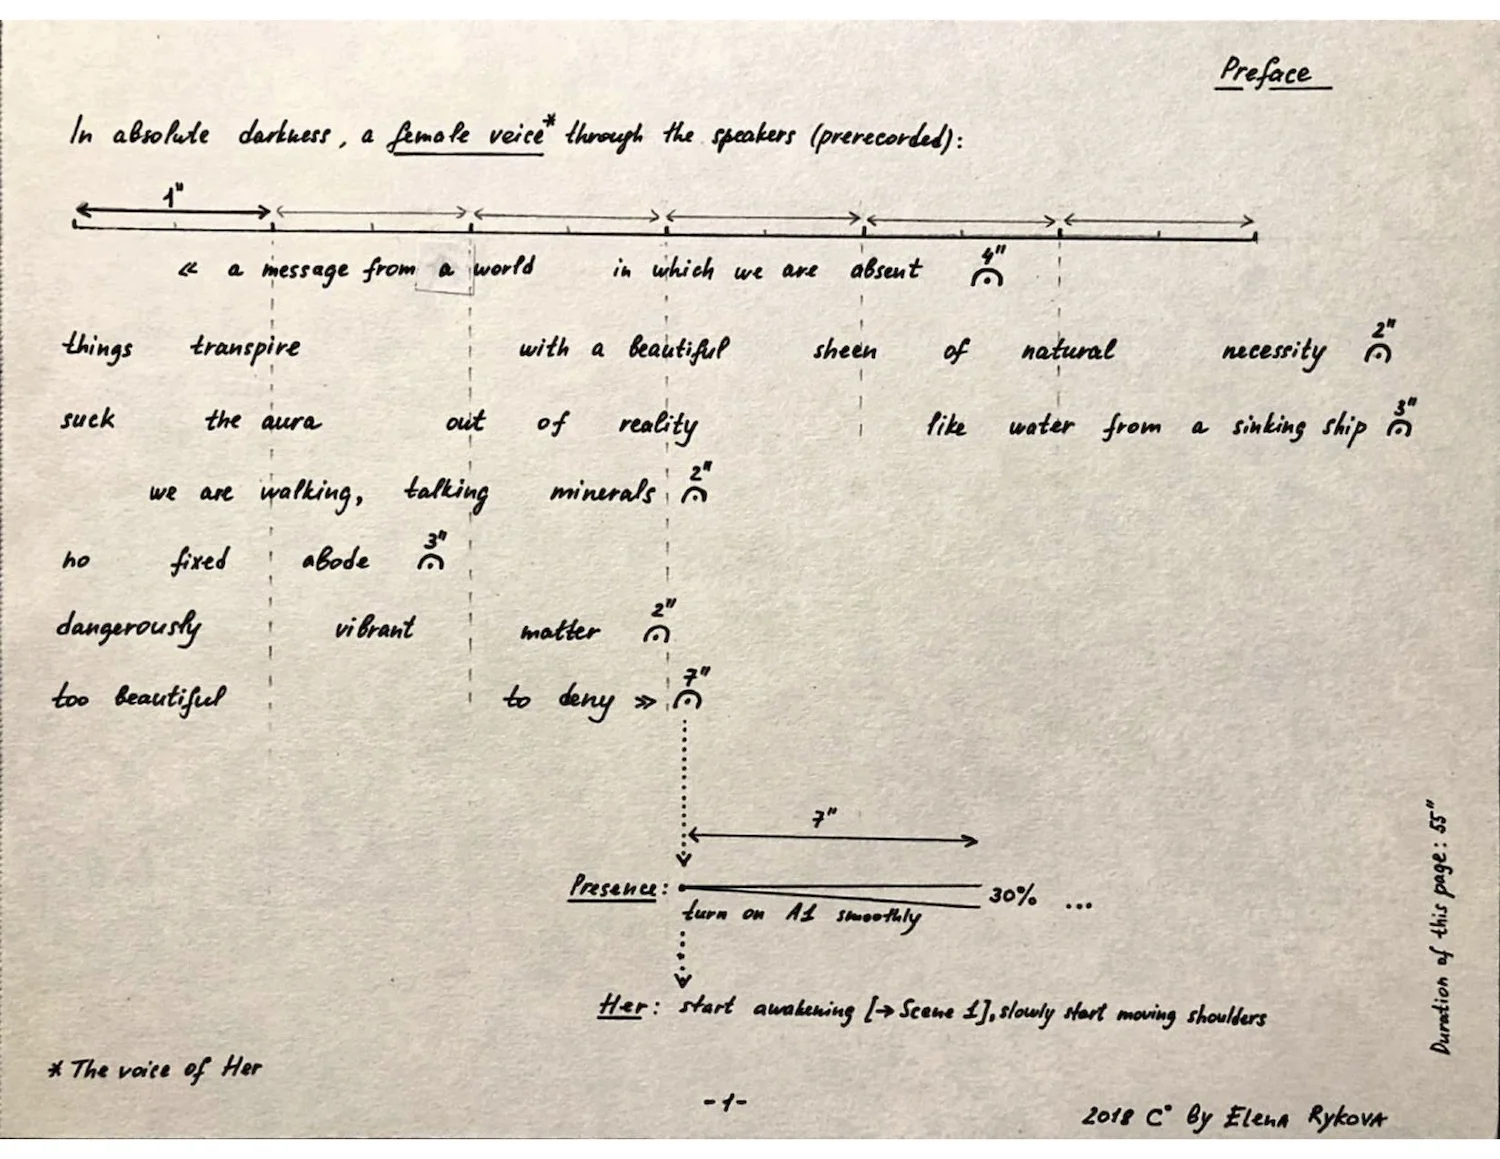 Preface
In absolute darkness, a female voice* through the speakers (prerecorded):
1"
« a message from a world in which we are absent 4"
things transpire with a beautiful sheen of natural necessity 2"
suck the aura out of reality like water from a sinking ship 3"
we are walking, talking minerals 2"
no fixed abode 3"
dangerously vibrant matter 2"
too beautiful to deny » 7"
7"
Presence: 30% ...
turn on A1 smoothly
Her: start awakening [→ Scene 1], slowly start moving shoulders
Duration of this page: 55"
* The voice of Her
-1-
2018 C° By Elena Rykova